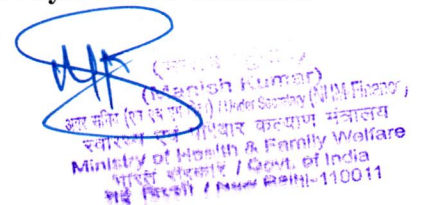 (Manish Kumar)
अवर सचिव / Under Secretary (NHM Finance)
स्वास्थ्य एवं परिवार कल्याण मंत्रालय
Ministry of Health & Family Welfare
भारत सरकार / Govt. of India
नई दिल्ली / New Delhi-110011